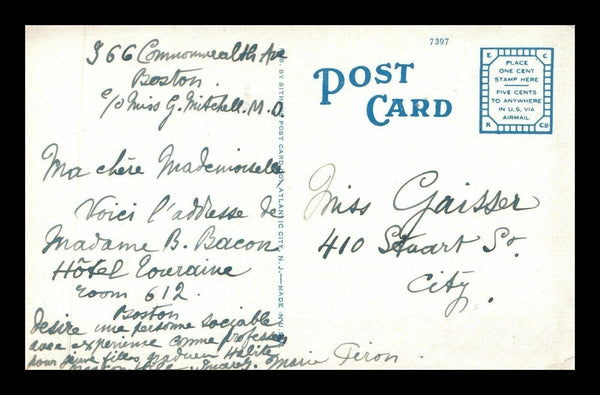 366 Commonwealth Ave
Boston.
c/o Miss G. Mitchell. M. D.
Ma chère Mademoiselle
Voici l'addesse de
Madame B. Bacon
Hôtel Touraine
room 612.
Boston
desire une personne sociable
avec experience comme professeur
pour jeune filles
Marie Féron
7397
POST
CARD
E C
K CO
PLACE
ONE CENT
STAMP HERE
FIVE CENTS
TO ANYWHERE
IN U.S. VIA
AIRMAIL
POST CARD CO., ATLANTIC CITY, N. J.—MADE IN U.
Miss Gaisser
410 Stuart St.
City.